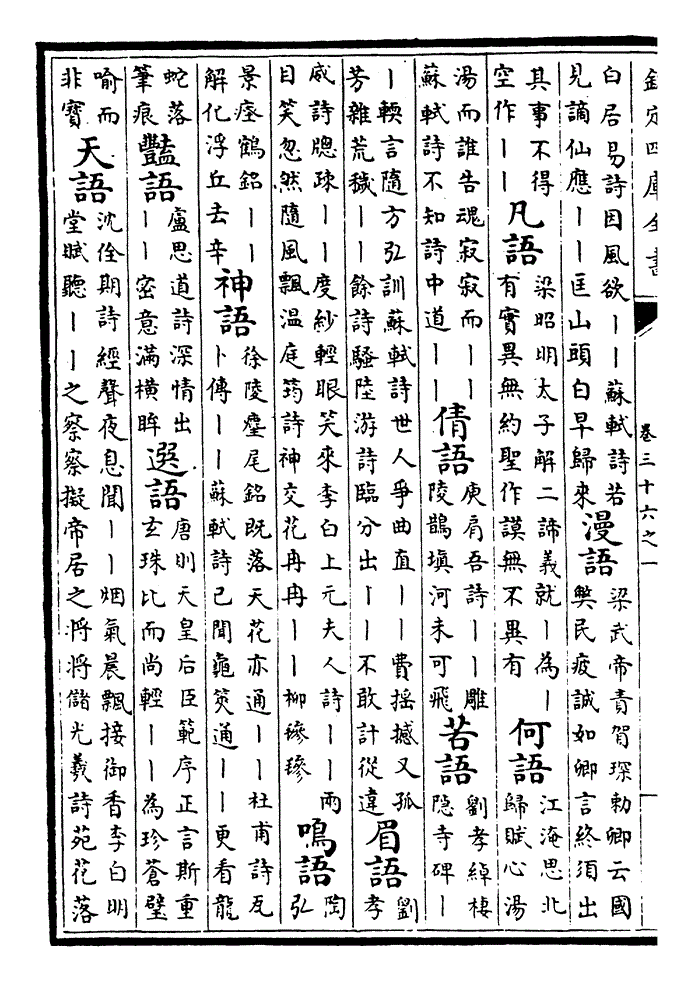 欽定四庫全書
卷三十六之一
白居易詩因風欲丨丨蘇軾詩若
見謫仙應丨丨匡山頭白早歸來
漫語
梁武帝責賀琛勅卿云國
弊民疲誠如卿言終須出
其事不得
空作丨丨
凡語
梁昭明太子解二諦義就丨為丨
有實異無約聖作謨無不異有
何語
江淹思北
歸賦心湯
湯而誰告魂寂寂而丨丨
蘇軾詩不知詩中道丨丨
倩語
庾肩吾詩丨丨雕
陵鵲填河未可飛
若語
劉孝綽棲
隱寺碑丨
丨輭言隨方弘訓蘇軾詩世人爭曲直丨丨費揺撼又孤
芳雜荒穢丨丨餘詩騷陸游詩臨分出丨丨不敢計從違
眉語
劉
孝
威詩牕疎丨丨度紗輕眼笑來李白上元夫人詩丨丨兩
目笑忽然隨風飄温庭筠詩神交花冉冉丨丨柳毿毿
鳴語
陶
弘
景瘞鶴銘丨丨
解化浮丘去辛
神語
徐陵麈尾銘既落天花亦通丨丨杜甫詩瓦
卜傳丨丨蘇軾詩已聞龜筴通丨丨更看龍
蛇落
筆痕
豔語
盧思道詩深情出
丨丨密意滿横眸
選語
唐則天皇后臣範序正言斯重
玄珠比而尚輕丨丨為珍蒼璧
喻而
非寳
天語
沈佺期詩經聲夜息聞丨丨烟氣晨飄接御香李白明
堂賦聽丨丨之察察擬帝居之將將儲光羲詩苑花落